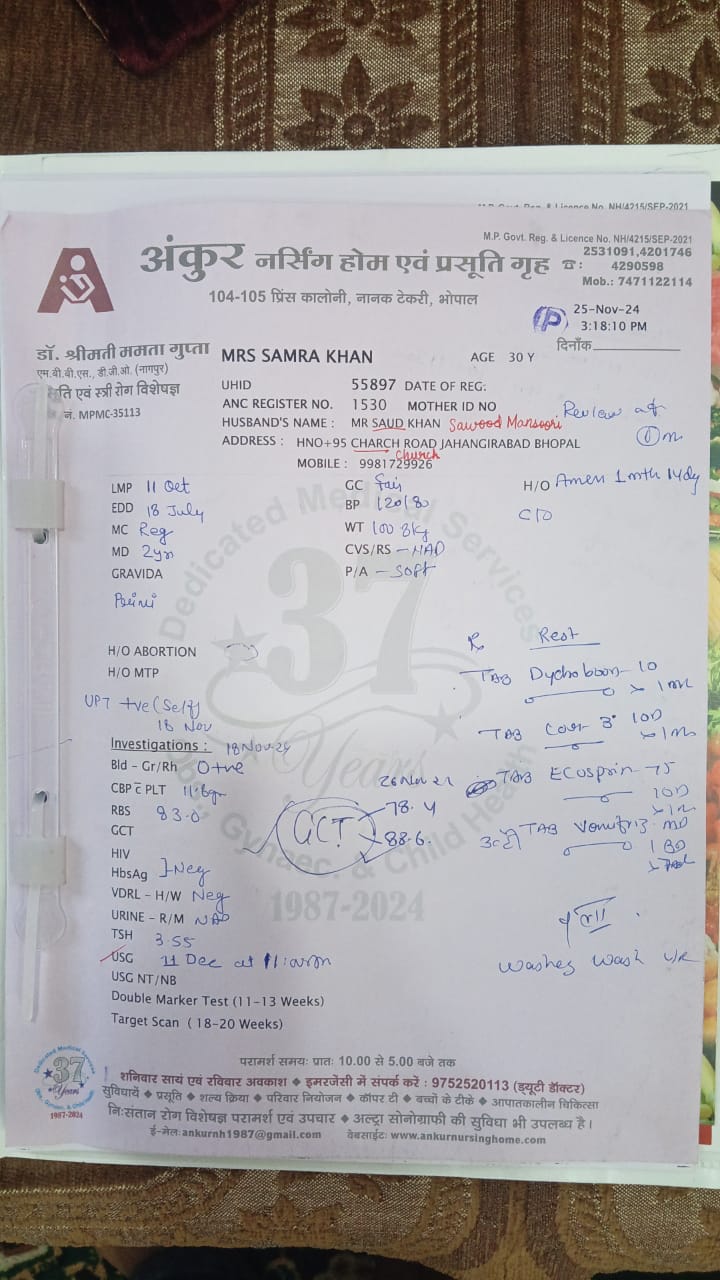 M.P. Govt. Reg. & Licence No. NH/4215/SEP-2021
M.P. Govt. Reg. & Licence No. NH/4215/SEP-2021
अंकुर नर्सिंग होम एवं प्रसूति गृह ☎: 2531091,4201746
4290598
Mob.: 7471122114
104-105 प्रिंस कालोनी, नानक टेकरी, भोपाल
P
25-Nov-24
3:18:10 PM
दिनाँक
डॉ. श्रीमती ममता गुप्ता
एम.बी.बी.एस., डी.जी.ओ. (नागपुर)
ति एवं स्त्री रोग विशेषज्ञ
नं. MPMC-35113
MRS SAMRA KHAN AGE 30 Y
UHID 55897 DATE OF REG:
ANC REGISTER NO. 1530 MOTHER ID NO
HUSBAND'S NAME : MR SAUD KHAN Sawood Mansoori
ADDRESS : HNO+95 CHARCH ROAD JAHANGIRABAD BHOPAL
Church
MOBILE : 9981729926
Review at
LMP 11 Oct
EDD 18 July
MC Reg
MD 2yr
GRAVIDA
Primi
GC fair
BP 120/80
WT 100.8kg
CVS/RS - NAD
P/A - Soft
H/O Amen 1 mth 14dy
C/O
H/O ABORTION
H/O MTP
UPT +ve (Self)
18 Nov
Investigations : 18 Nov-24
Bld - Gr/Rh O+ve
CBP c̄ PLT 11.6gm
RBS 83.0
GCT
HIV
HbsAg }-Neg
VDRL - H/W Neg
URINE - R/M NAD
TSH 3.55
USG 11 Dec at 11:am
USG NT/NB
Double Marker Test (11-13 Weeks)
Target Scan ( 18-20 Weeks)
GCT
78.4
88.6
Rx Rest
TAB Dychoboon - 10
TAB
TAB ECOSprin - 75
10D
TAB
Wash
37 Years
Dedicated Medical Services
Obs., Gynaec. & Child Health
1987-2024
Dedicated Medical Services
37
Years
1987-2024
परामर्श समयः प्रातः 10.00 से 5.00 बजे तक
शनिवार सायं एवं रविवार अवकाश ◆ इमरजेंसी में संपर्क करें : 9752520113 (ड्यूटी डॉक्टर)
सुविधायें ◆ प्रसूति ◆ शल्य क्रिया ◆ परिवार नियोजन ◆ कॉपर टी ◆ बच्चों के टीके ◆ आपातकालीन चिकित्सा
निःसंतान रोग विशेषज्ञ परामर्श एवं उपचार ◆ अल्ट्रा सोनोग्राफी की सुविधा भी उपलब्ध है।
ई-मेलः ankurnh1987@gmail.com वेबसाईटः www.ankurnursinghome.com